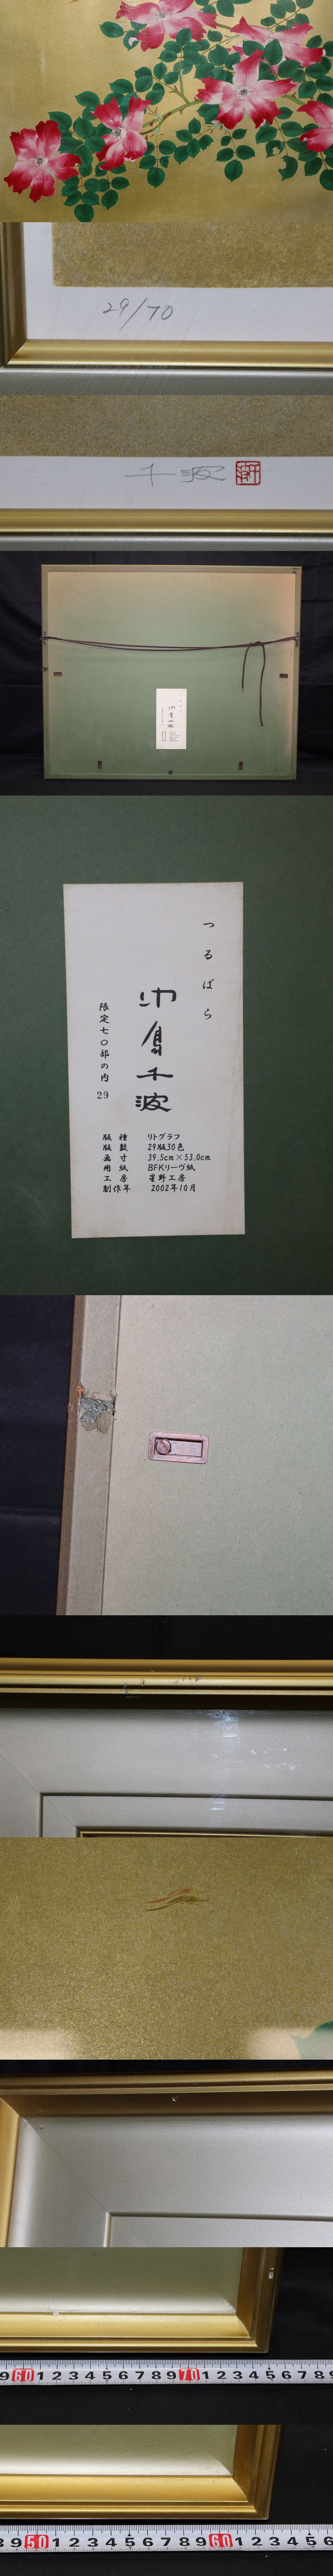 29/70
千波
つるばら
中島千波
限定七〇部の内 29
版種 リトグラフ
版数 29版30色
画寸 39.5cm×53.0cm
用紙 BFKリーヴ紙
工房 星野工房
制作年 2002年10月
9 60 1 2 3 4 5 6 7 8 9 70 1 2 3 4 5 6 7 8 9
8 9 50 1 2 3 4 5 6 7 8 9 60 1 2 3 4 5 6